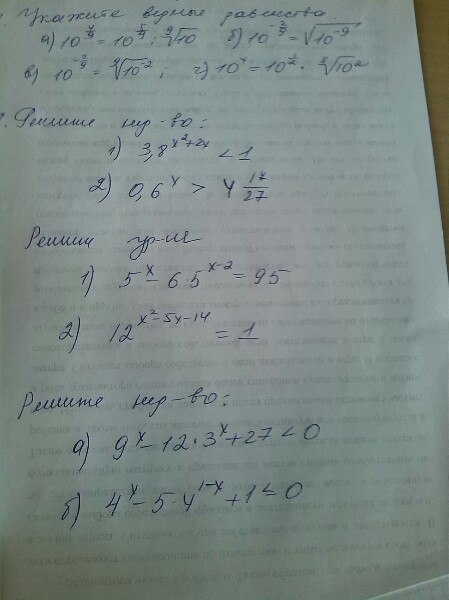 Укажите верные равенства
а) 10^(7/9) = 10^(7/9) : ⁹√10 б) 10^(-2/9) = √10^(-9)
в) 10^(-2/9) = ⁹√10^(-2) ; г) 10^x = 10^2 · √10^2
Решите нер-во:
1) 3,8^(x²+2x) < 1
2) 0,6^x > 4 17/27
Решим ур-ие
1) 5^x - 6 5^(x-2) = 95
2) 12^(x²-5x-14) = 1
Решите нер-во:
а) 9^x - 12·3^x + 27 < 0
б) 4^x - 5 4^(1-x) + 1 < 0